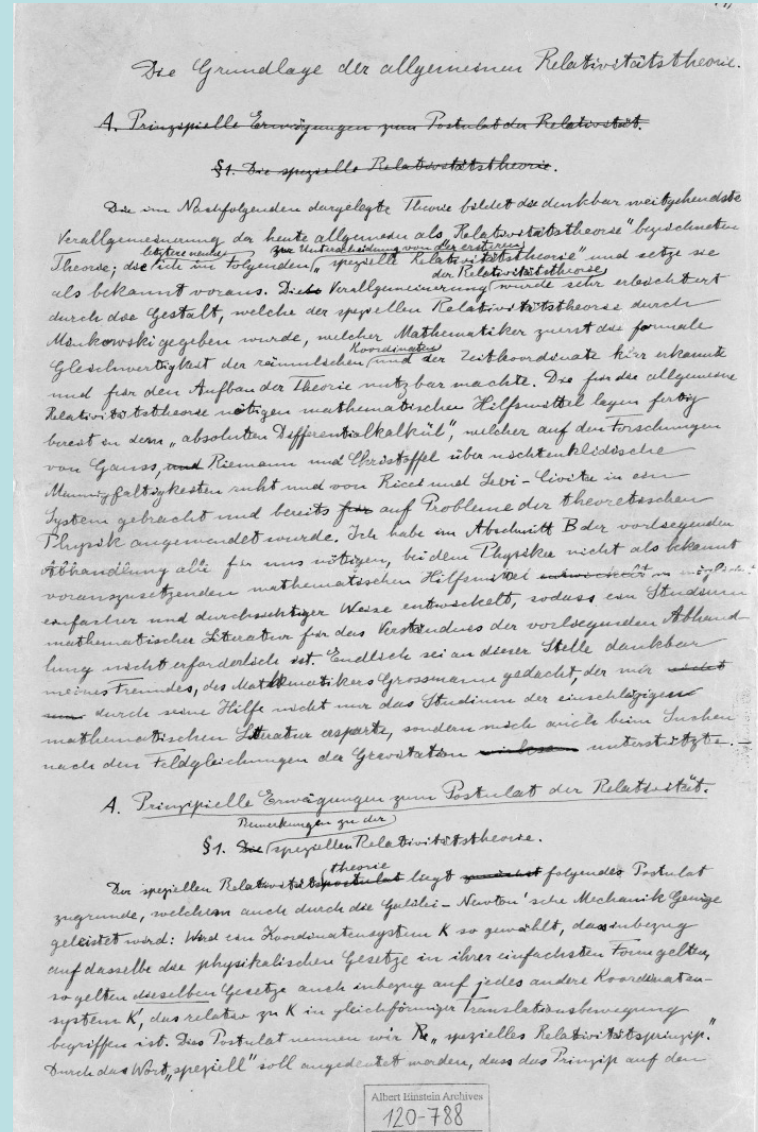 Die Grundlage der allgemeinen Relativitätstheorie.
A. Prinzipielle Erwägungen zum Postulat der Relativität.
§1. Die spezielle Relativitätstheorie.
Die im Nachfolgenden dargelegte Theorie bildet die denkbar weitgehendste
Verallgemeinerung der heute allgemein als „Relativitätstheorie" bezeichneten
letztere nenne zur Unterscheidung von der ersteren
Theorie; die ich im Folgenden „spezielle Relativitätstheorie" und setze sie
der Relativitätstheorie
als bekannt voraus. Die Verallgemeinerung wurde sehr erleichtert
durch die Gestalt, welche der speziellen Relativitätstheorie durch
Minkowski gegeben wurde, welcher Mathematiker zuerst die formale
Koordinaten
Gleichwertigkeit der räumlichen und der Zeitkoordinate klar erkannte
und für den Aufbau der Theorie nutzbar machte. Die für die allgemeine
Relativitätstheorie nötigen mathematischen Hilfsmittel lagen fertig
bereit in dem „absoluten Differentialkalkül", welcher auf den Forschungen
von Gauss, und Riemann und Christoffel über nichteuklidische
Mannigfaltigkeiten ruht und von Ricci und Levi-Civita in ein
System gebracht und bereits für auf Probleme der theoretischen
Physik angewendet wurde. Ich habe im Abschnitt B der vorliegenden
Abhandlung alle für uns nötigen, bei dem Physiker nicht als bekannt
vorauszusetzenden mathematischen Hilfsmittel entwickelt in möglichst
einfacher und durchsichtiger Weise entwickelt, sodass ein Studium
mathematischer Literatur für das Verständnis der vorliegenden Abhand-
lung nicht erforderlich ist. Endlich sei an dieser Stelle dankbar
meines Freundes, des Mathematikers Grossmann gedacht, der mir nicht
nur durch seine Hilfe nicht nur das Studium der einschlägigen
mathematischen Literatur ersparte, sondern mich auch beim Suchen
nach den Feldgleichungen der Gravitation unterstützte. —
A. Prinzipielle Erwägungen zum Postulat der Relativität.
Bemerkungen zu der
§1. Die speziellen Relativitätstheorie.
theorie
Der speziellen Relativitätspostulat liegt zunächst folgendes Postulat
zugrunde, welchem auch durch die Galilei-Newton'sche Mechanik Genüge
geleistet wird: Wird ein Koordinatensystem K so gewählt, dass inbezug
auf dasselbe die physikalischen Gesetze in ihrer einfachsten Form gelten,
so gelten dieselben Gesetze auch inbezug auf jedes andere Koordinaten-
system K', das relativ zu K in gleichförmiger Translationsbewegung
begriffen ist. Dies Postulat nennen wir „spezielles Relativitätsprinzip."
Durch das Wort „speziell" soll angedeutet werden, dass das Prinzip auf den
Albert Einstein Archives
120-788